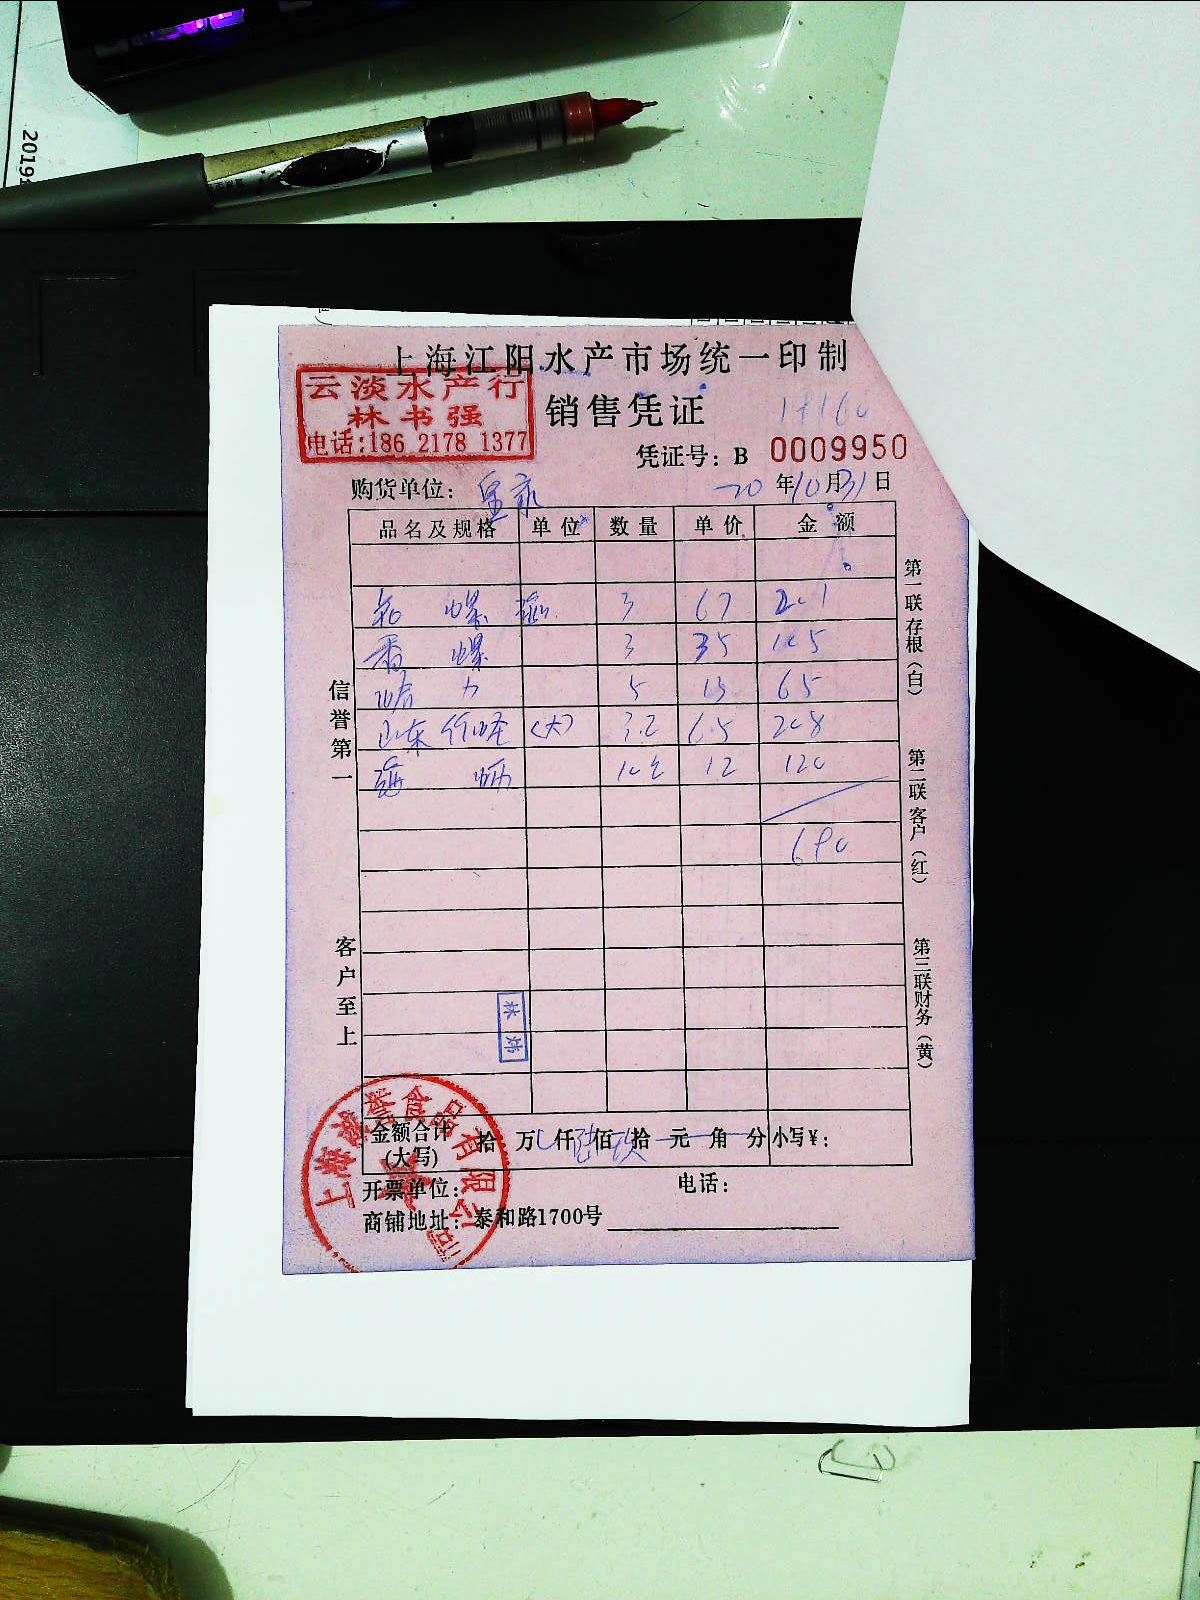 2019
上海江阳水产市场统一印制
云淡水产行
林书强
电话:186 2178 1377
销售凭证
凭证号: B 0009950
购货单位:
20 年 10 月 31 日
品名及规格 单位 数量 单价 金额
螺 3 67 201
香螺 3 35 105
哈 力 5 13 65
山东竹蛏 (大) 3.2 65 208
海蛎 12 120
690
信誉第一
客户至上
第一联存根(白)
第二联客户(红)
第三联财务(黄)
林
上海 食品有限公司
金额合计(大写) 拾 万 仟 陆 佰 玖 拾 元 角 分 小写¥:
开票单位: 电话:
商铺地址: 泰和路1700号